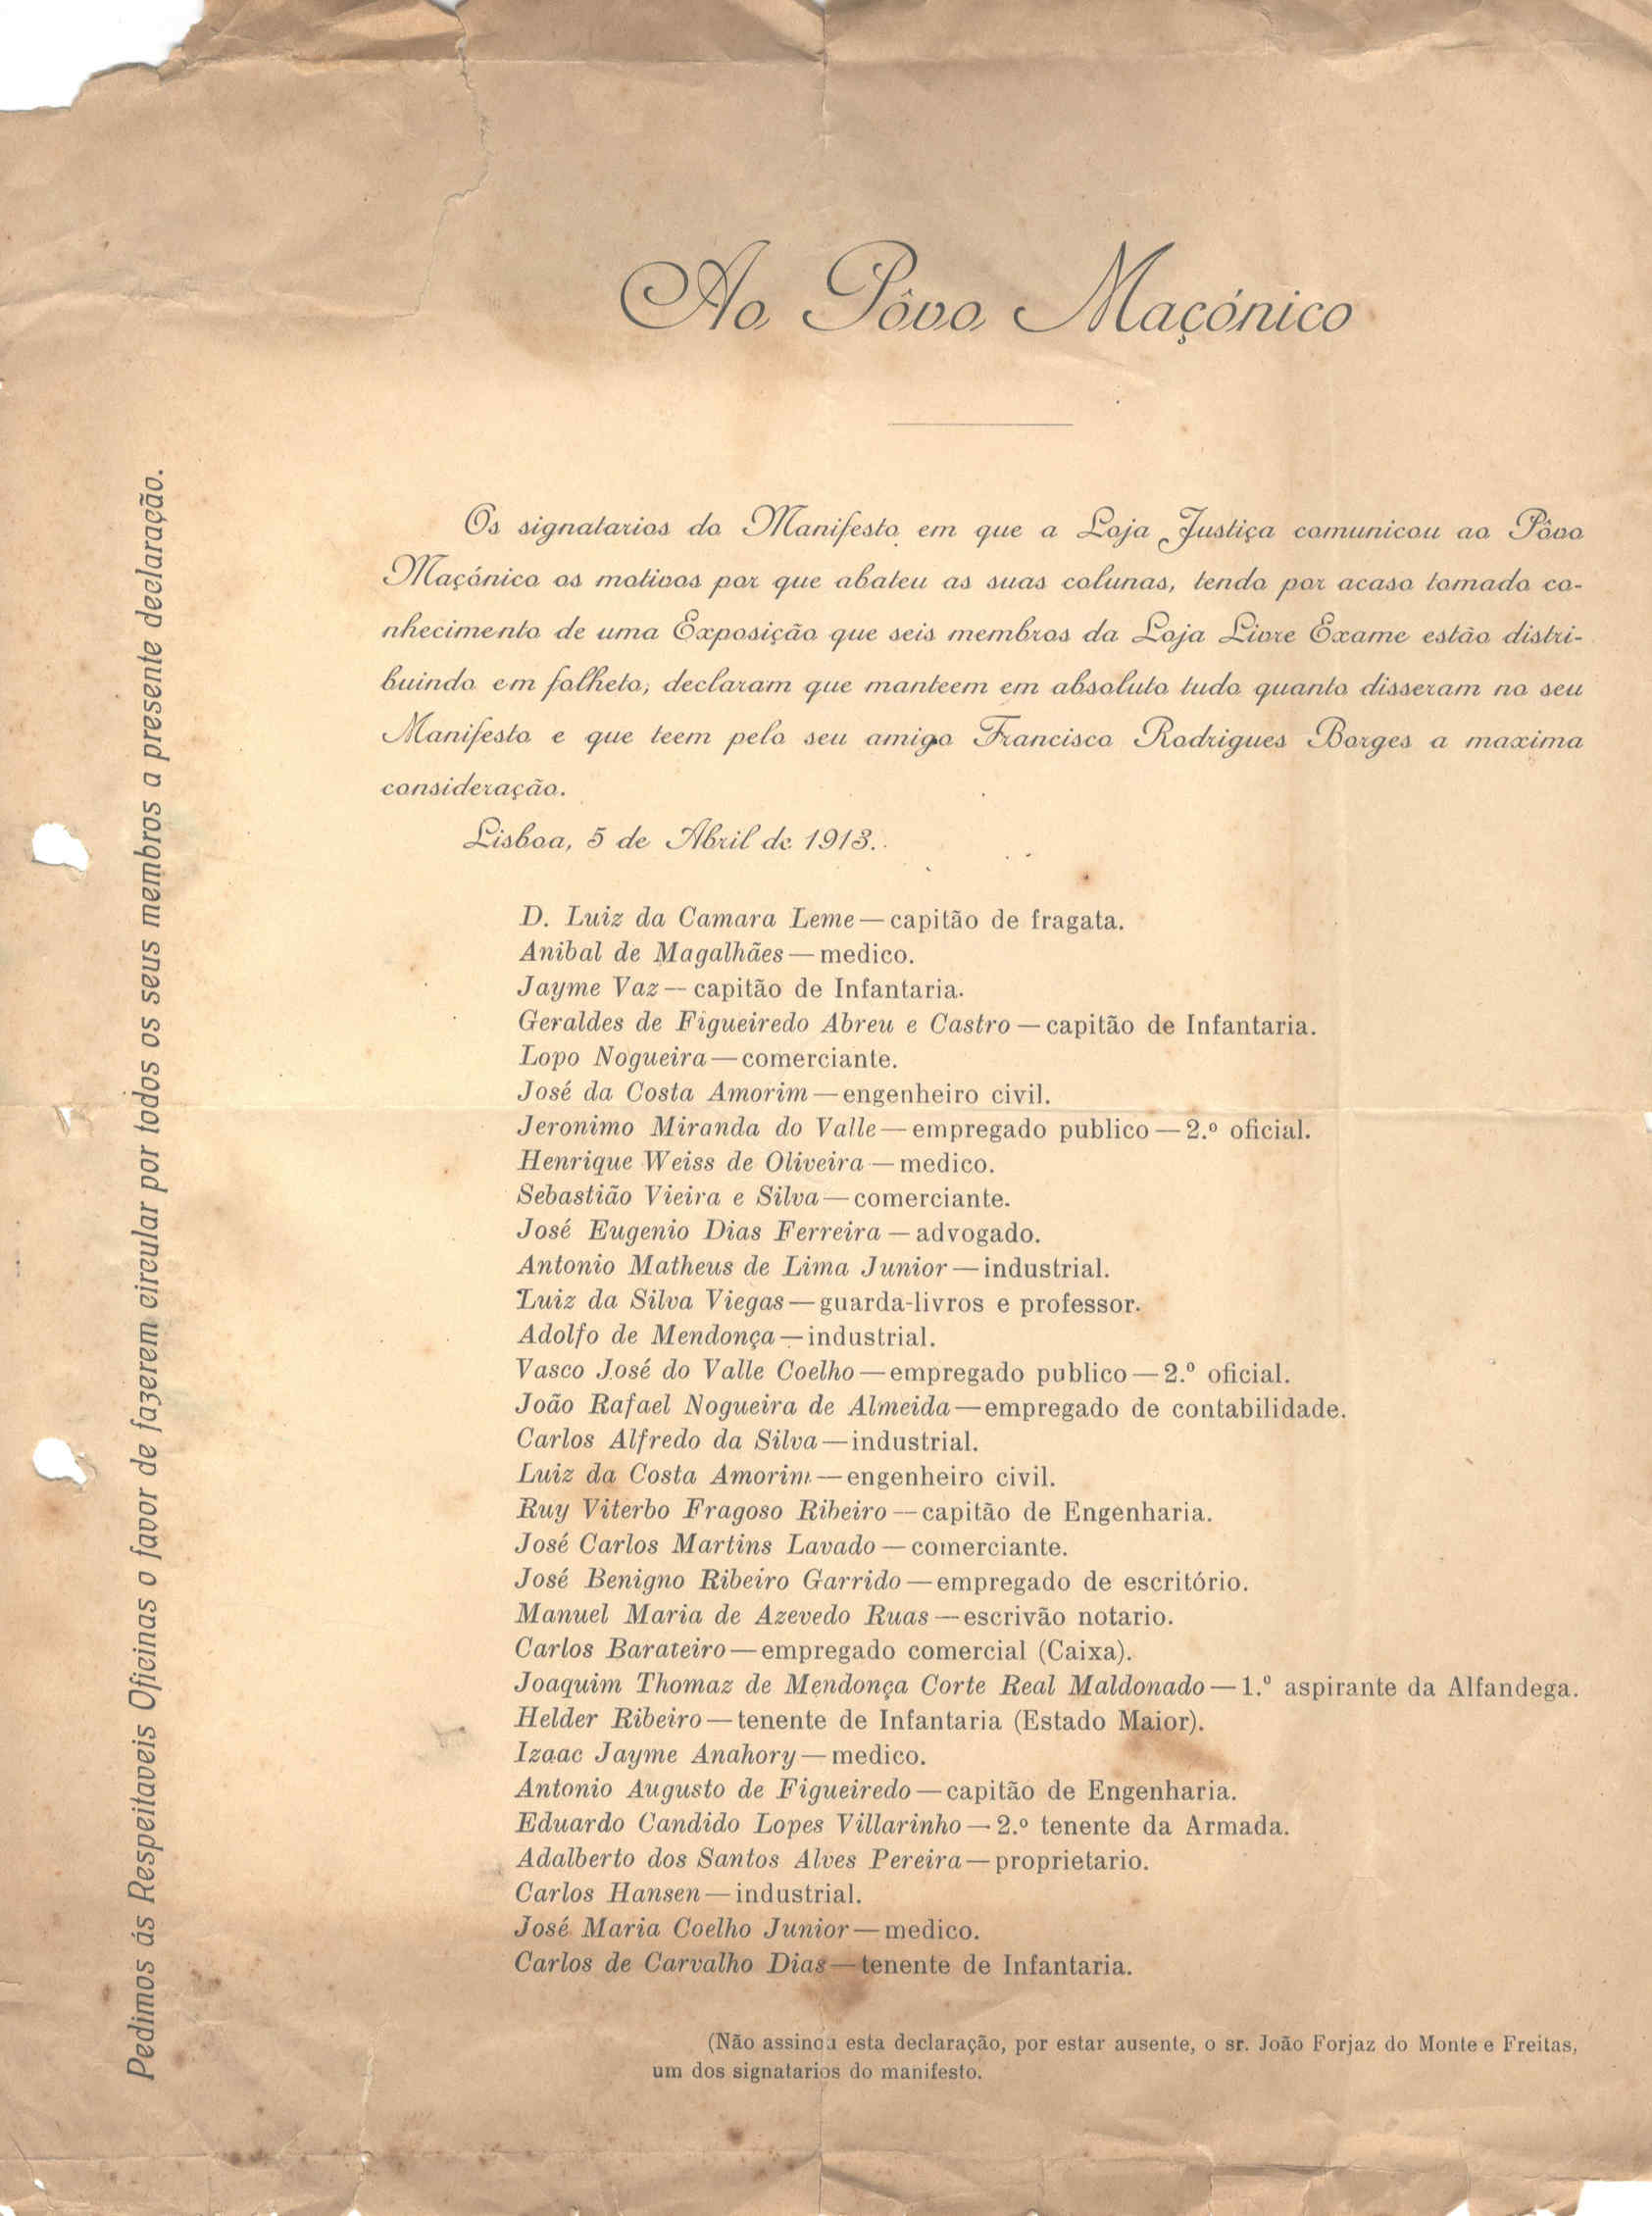 Ao Pôvo Maçónico
Os signatarios do Manifesto em que a Loja Justiça comunicou ao Pôvo
Maçónico os motivos por que abateu as suas colunas, tendo por acaso tomado co-
nhecimento de uma Exposição que seis membros da Loja Livre Exame estão distri-
buindo em folheto, declaram que manteem em absoluto tudo quanto disseram no seu
Manifesto e que teem pelo seu amigo Francisco Rodrigues Borges a maxima
consideração.
Lisboa, 5 de Abril de 1913.
D. Luiz da Camara Leme—capitão de fragata.
Anibal de Magalhães—medico.
Jayme Vaz—capitão de Infantaria.
Geraldes de Figueiredo Abreu e Castro—capitão de Infantaria.
Lopo Nogueira—comerciante.
José da Costa Amorim—engenheiro civil.
Jeronimo Miranda do Valle—empregado publico—2.º oficial.
Henrique Weiss de Oliveira—medico.
Sebastião Vieira e Silva—comerciante.
José Eugenio Dias Ferreira—advogado.
Antonio Matheus de Lima Junior—industrial.
Luiz da Silva Viegas—guarda-livros e professor.
Adolfo de Mendonça—industrial.
Vasco José do Valle Coelho—empregado publico—2.º oficial.
João Rafael Nogueira de Almeida—empregado de contabilidade.
Carlos Alfredo da Silva—industrial.
Luiz da Costa Amorim—engenheiro civil.
Ruy Viterbo Fragoso Ribeiro—capitão de Engenharia.
José Carlos Martins Lavado—comerciante.
José Benigno Ribeiro Garrido—empregado de escritório.
Manuel Maria de Azevedo Ruas—escrivão notario.
Carlos Barateiro—empregado comercial (Caixa).
Joaquim Thomaz de Mendonça Corte Real Maldonado—1.º aspirante da Alfandega.
Helder Ribeiro—tenente de Infantaria (Estado Maior).
Izaac Jayme Anahory—medico.
Antonio Augusto de Figueiredo—capitão de Engenharia.
Eduardo Candido Lopes Villarinho—2.º tenente da Armada.
Adalberto dos Santos Alves Pereira—proprietario.
Carlos Hansen—industrial.
José Maria Coelho Junior—medico.
Carlos de Carvalho Dias—tenente de Infantaria.
(Não assinou esta declaração, por estar ausente, o sr. João Forjaz do Monte e Freitas,
um dos signatarios do manifesto.
Pedimos ás Respeitaveis Oficinas o favor de fazerem circular por todos os seus membros a presente declaração.